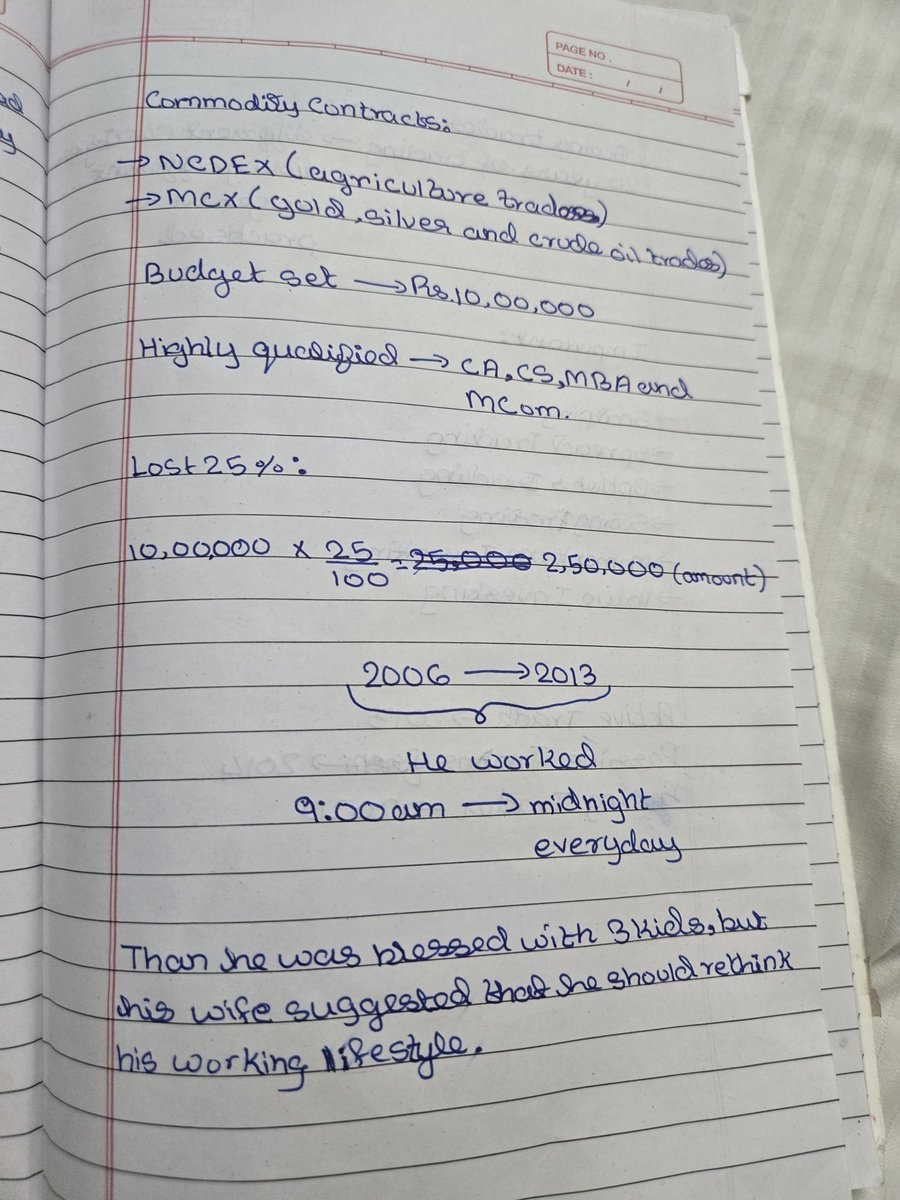 PAGE NO.
DATE: / /
Commodity Contracts:
→ NCDEX (agriculture trades)
→ MCX (gold, silver and crude oil trades)
Budget set → Rs.10,00,000
Highly qualified → CA, CS, MBA and
MCom.
Lost 25%:
10,00,000 × 25/100 = 25,000 2,50,000 (amount)
2006 → 2013
He worked
9:00am → midnight
everyday
Than he was blessed with 3 kids, but
his wife suggested that he should rethink
his working lifestyle.